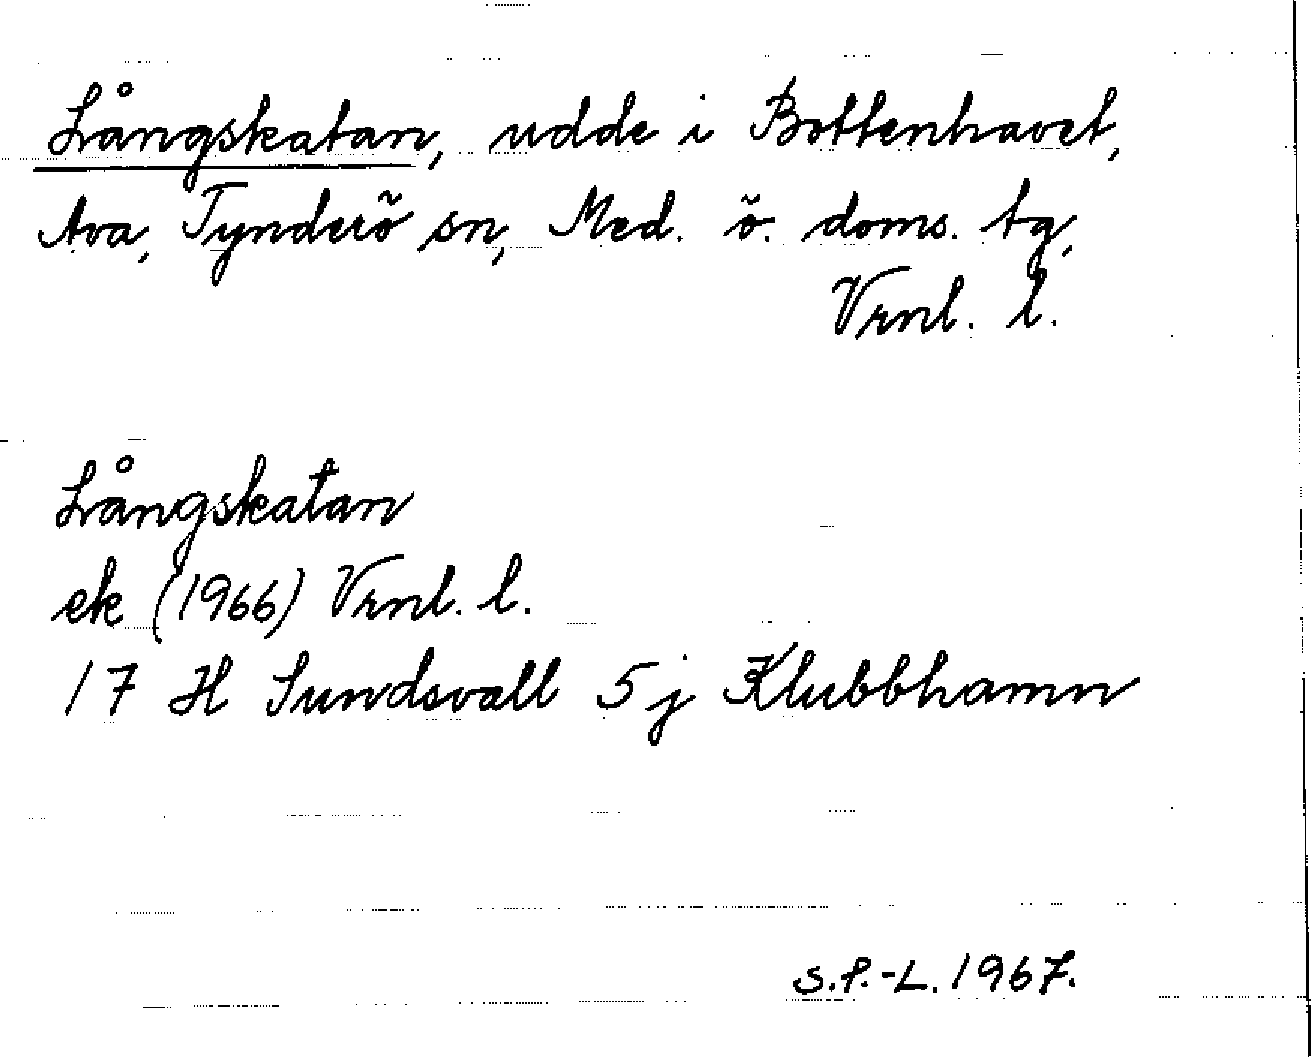 Långskatan, udde i Bottenhavet,
Ava, Tynderö sn, Med. ö. doms. tg,
Vrnl. l.
Långskatan
ek (1966) Vrnl. l.
17 H Sundsvall 5 j Klubbhamn
S.P.-L. 1967.